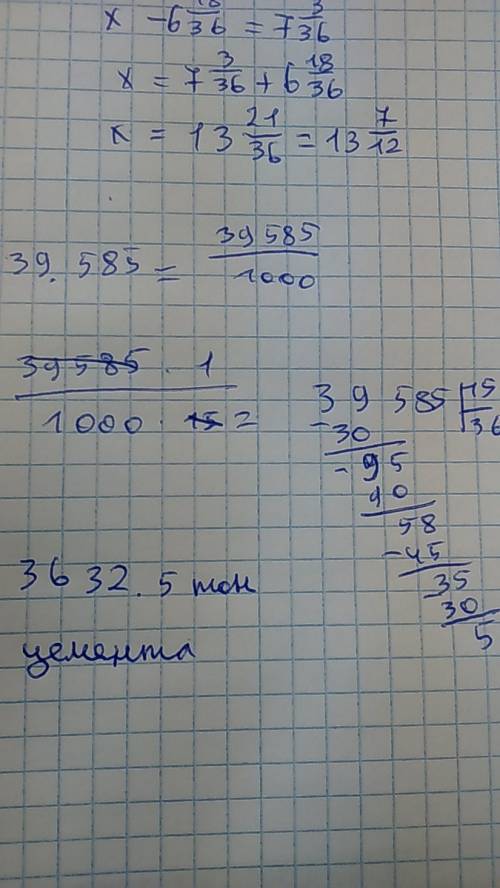 x - 6 18/36 = 7 3/36
x = 7 3/36 + 6 18/36
x = 13 21/36 = 13 7/12
39.585 = 39585/1000
39585 · 1
1000 · 15 2
39 585 | 15
-30 36
-95
90
58
-45
35
30
5
3632.5 тон
цемента